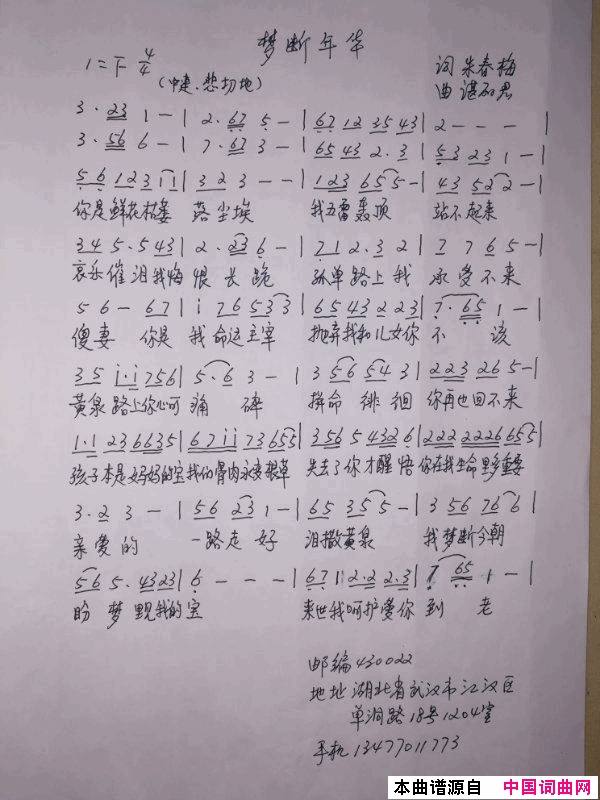 梦断年华
1=F 4/4
(中速、悲切地)
词 朱春梅
曲 谌研君
3·23 1-|2·67 5-|67 12 35 43|2---|
3·56 6-|7·67 3-|65 43 2·3|53 23 1-|
56 123 11|323--|123 655-|43 522-|
你是鲜花枯萎 落尘埃 我五雷轰顶 站不起来
345·543|2·236-|712·32|7765-|
哀乐催泪我悔恨长跪 孤单路上我承受不来
56-67|i76533|6543223|7·651-|
傻妻 你是我命运主宰 抛弃我和儿女你不 该
35 i·i 756|5·63-|3565543|223265-|
黄泉路上你心可痛 碎 拼命 徘徊 你再也回不来
1·1 236635|67ii73655|35654326|2222226655|
孩子本是妈妈的宝 我们骨肉永变根草 失去了你才醒悟 你在我生命里多重要
3·23-|56231-|65355-|356766|
亲爱的 一路走好 泪撒黄泉 我梦断今朝
565·4323|6---|671 2·2 2·3|7 65 1-|
盼 梦里见我的宝 来世我呵护爱你到 老
邮编430022
地址 湖北省武汉市江汉区
单洞路18号1204室
手机 13477011773
本曲谱源自 中国词曲网